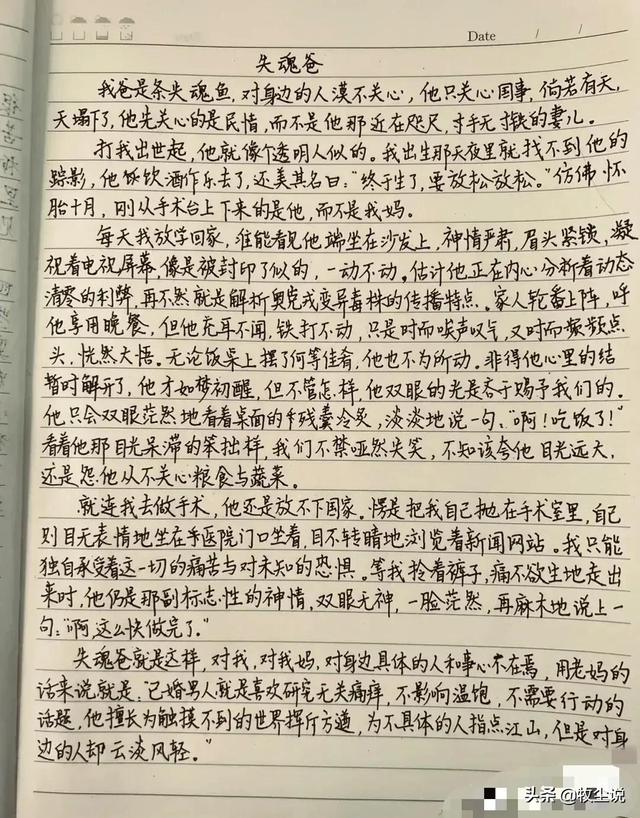 Date / /
失魂爸
我爸是条失魂鱼，对身边的人漠不关心，他只关心国事，倘若有天，
天塌下了，他先关心的是民情，而不是他那近在咫尺，寸手无寸铁的妻儿。
打我出世起，他就像个透明人似的。我出生那天夜里就找不到他的
踪影，他饭饮酒作乐去了，还美其名曰：“终于生了，要放松放松。”仿佛怀
胎十月，刚从手术台上下来的是他，而不是我妈。
每天我放学回家，准能看见他端坐在沙发上，神情严肃，眉头紧锁，凝
视着电视屏幕，像是被封印了似的，一动不动。估计他正在内心分析着动态
清零的利弊，再不然就是解析奥克戎变异毒株的传播特点。家人轮番上阵，呼
他享用晚餐，但他充耳不闻，铁打不动，只是时而唉声叹气，又时而频频点
头，恍然大悟。无论饭桌上摆了何等佳肴，他也不为所动。非得他心里的结
暂时解开了，他才如梦初醒，但不管怎样，他双眼的光是吝于赐予我们的。
他只会双眼茫然地看着桌面的残羹冷炙，淡淡地说一句：“啊！吃饭了！”
看着他那目光呆滞的笨拙样，我们不禁哑然失笑，不知该夸他目光远大，
还是怨他从不关心粮食与蔬菜。
就连我去做手术，他还是放不下国家。愣是把我自己抛在手术室里，自己
则面无表情地坐在医院门口坐着，目不转睛地浏览着新闻网站。我只能
独自承受着这一切的痛苦与对未知的恐惧。等我拎着裤子，痛不欲生地走出
来时，他仍是那副标志性的神情，双眼无神，一脸茫然，再麻木地说上一
句：“啊，这么快做完了。”
失魂爸就是这样，对我，对我妈，对身边具体的人和事心不在焉，用老妈的
话来说就是：“已婚男人就是喜欢研究无关痛痒，不影响温饱，不需要行动的
话题，他擅长为触摸不到的世界挥斤方遒，为不具体的人指点江山，但是对身
边的人却云淡风轻。”
头条 @牧尘说